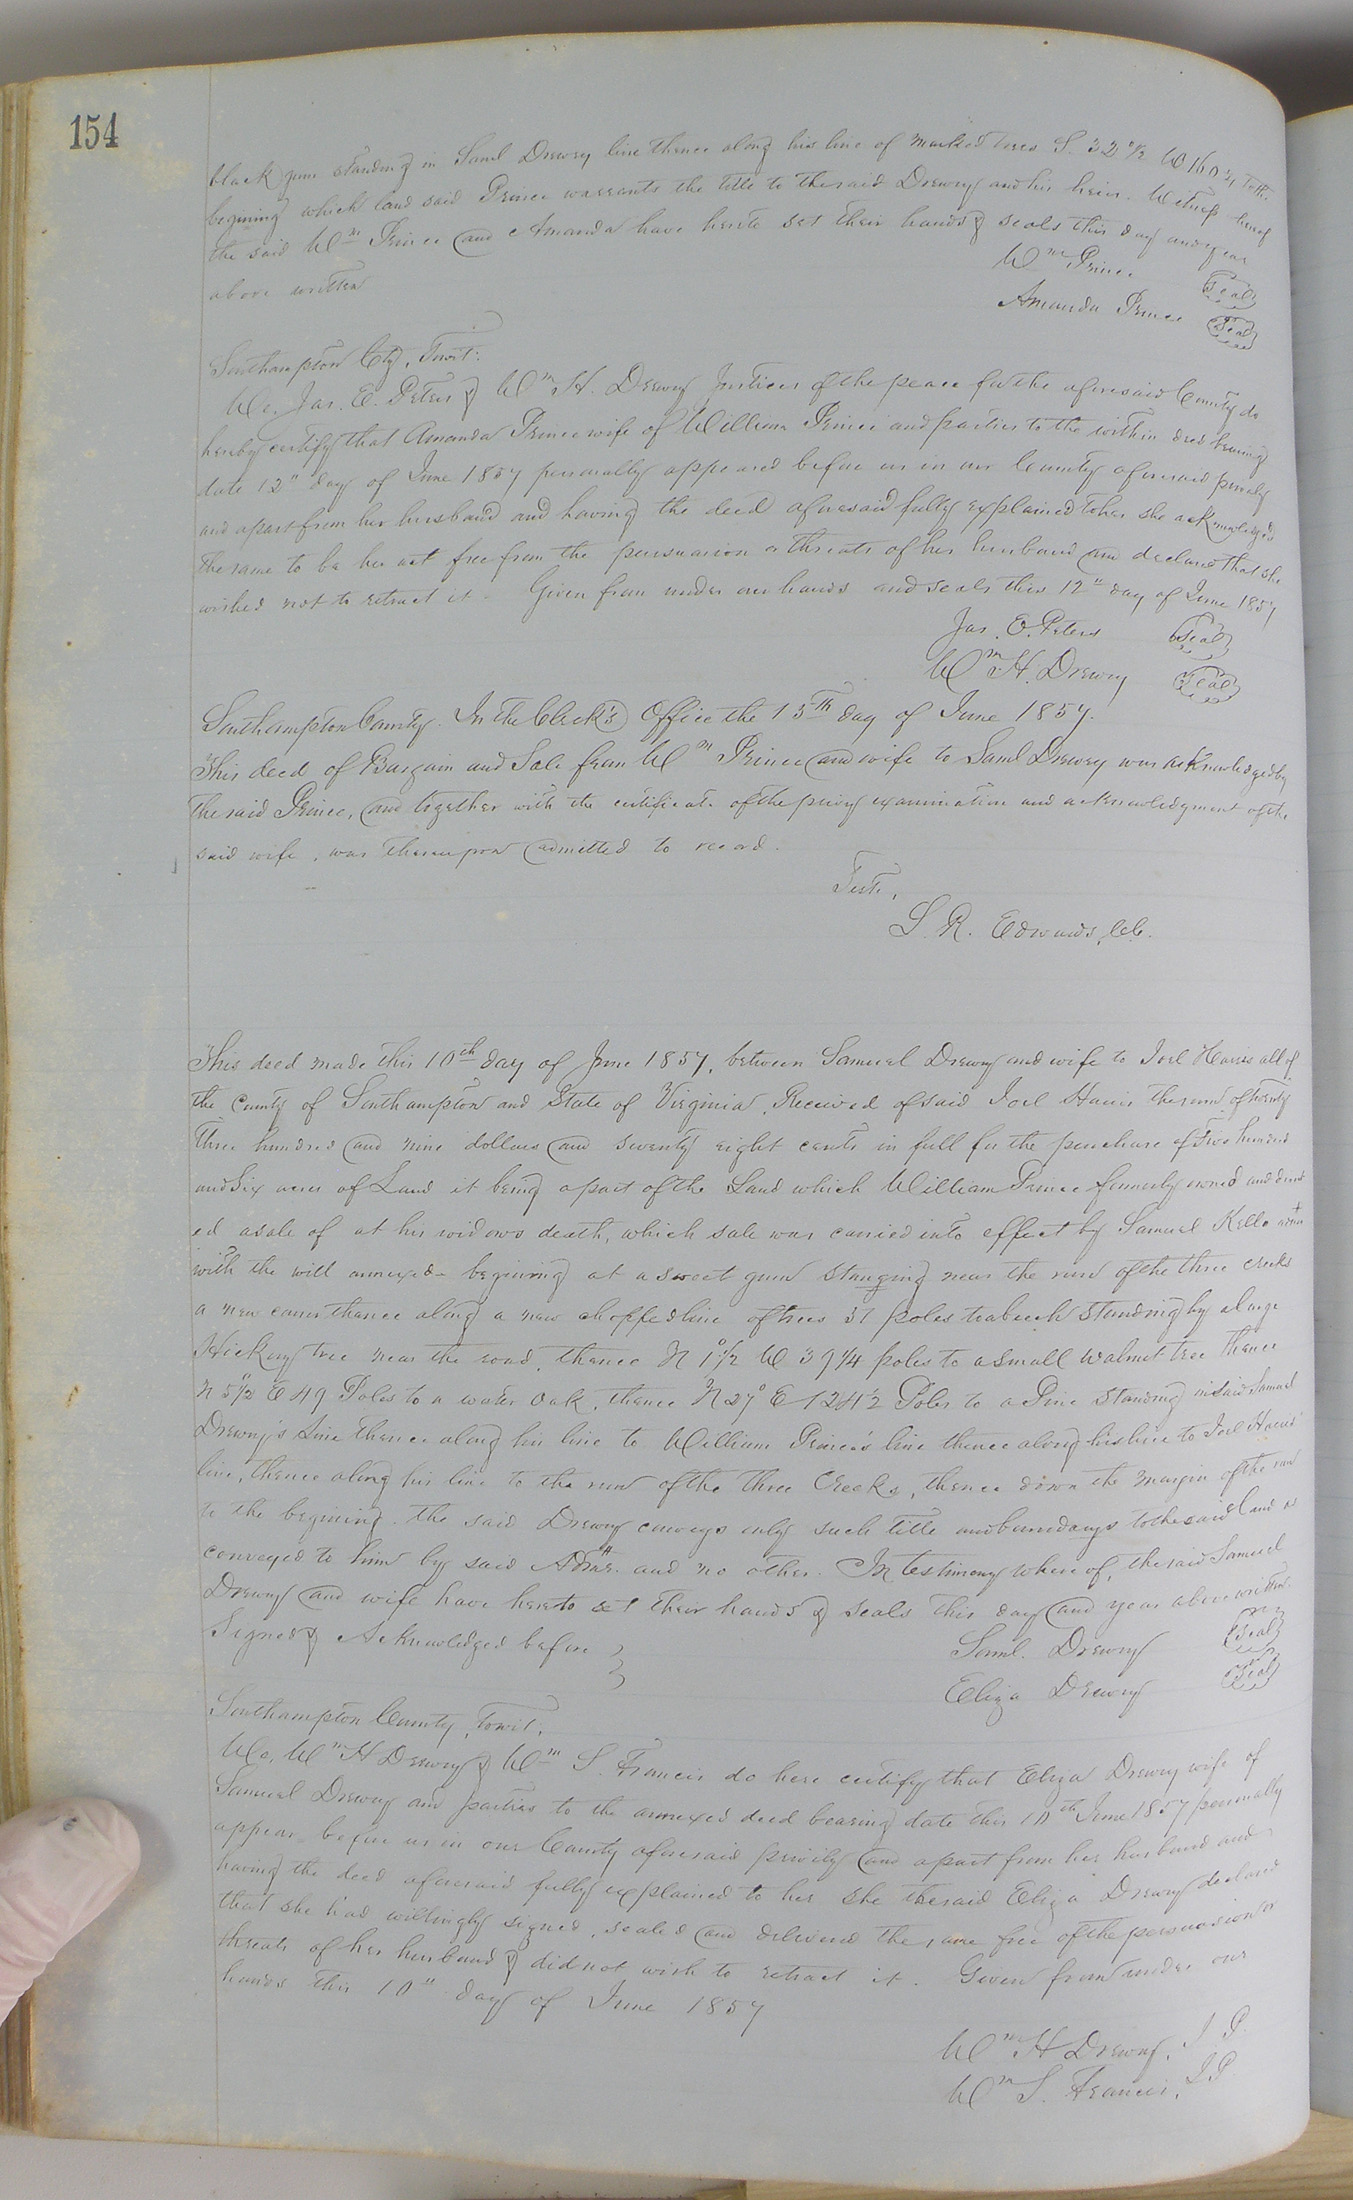 154
black gum standing in Saml Drewry line thence along his line of marked trees S. 32°½ W 160¼ to the
begining which land said Prince warrants the title to the said Drewry and his heirs. Witness hereof
the said Wm Prince and Amanda have hereto set their hands & seals this day and year
above written
Wm Prince Seal
Amanda Prince Seal
Southampton Cty, Towit:
We, Jas. E. Peters & Wm H. Drewry Justices of the peace for the aforesaid County do
hereby certify that Amanda Prince wife of William Prince and parties to the within deed bearing
date 12" day of June 1857 personally appeared before us in our County aforesaid privily
and apart from her husband and having the deed aforesaid fully explained to her she acknowledged
the same to be her act free from the persuasion or threats of her husband and declared that she
wished not to retract it. Given from under our hands and seals this 12" day of June 1857
Jas. E. Peters Seal
Wm H. Drewry Seal
Southampton County. In the Clerk's Office the 15th day of June 1857.
This deed of Bargain and Sale from Wm Prince and wife to Saml Drewry was acknowledged by
the said Prince, and together with the certificate of the privy examination and acknowledgment of the
said wife, was thereupon admitted to record.
Teste,
L. R. Edwards, CC.
This deed made this 10th day of June 1857, between Samuel Drewry and wife to Joel Harris all of
the County of Southampton and State of Virginia, Received of said Joel Harris the sum of twenty
three hundred and nine dollars and seventy eight cents in full for the purchase of Two hundred
and Six acres of Land it being a part of the Land which William Prince formerly owned and direct
ed a sale of at his widows death, which sale was carried into effect by Samuel Kello admr
with the will annexed - begining at a sweet gum standing near the run of the three creeks
a new corner thence along a new chopped line of trees 31 poles to a beech standing by a large
Hickory tree near the road, thence N 1°½ W 39¼ poles to a small walnut tree thence
N 5°½ E 49 Poles to a water Oak, thence N 27° E 124½ Poles to a Pine Standing in said Samuel
Drewry's line thence along his line to William Prince's line thence along his line to Joel Harris'
line, thence along his line to the run of the three Creeks, thence down the margin of the run
to the begining. the said Drewry conveys only such title and boundarys to the said land as
conveyed to him by said Admr. and no other. In testimony where of, the said Samuel
Drewry and wife have hereto set their hands & seals this day and year above written.
Signed & Acknowledged before }
Saml. Drewry Seal
Eliza Drewry Seal
Southampton County, Towit,
We, Wm H Drewry & Wm S. Francis do here certify that Eliza Drewry wife of
Samuel Drewry and parties to the annexed deed bearing date this 10th June 1857 personally
appear before us in our County aforesaid privily and apart from her husband and
having the deed aforesaid fully explained to her she the said Eliza Drewry declared
that she had willingly signed, sealed and delivered the same free of the persuasion or
threats of her husband & did not wish to retract it. Given from under our
hands this 10" day of June 1857
Wm H Drewry, J P.
Wm S. Francis, J P.